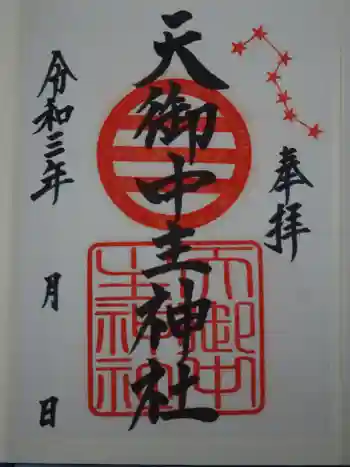 奉拝
天御中主神社
天御中
主神社
令和三年 月 日